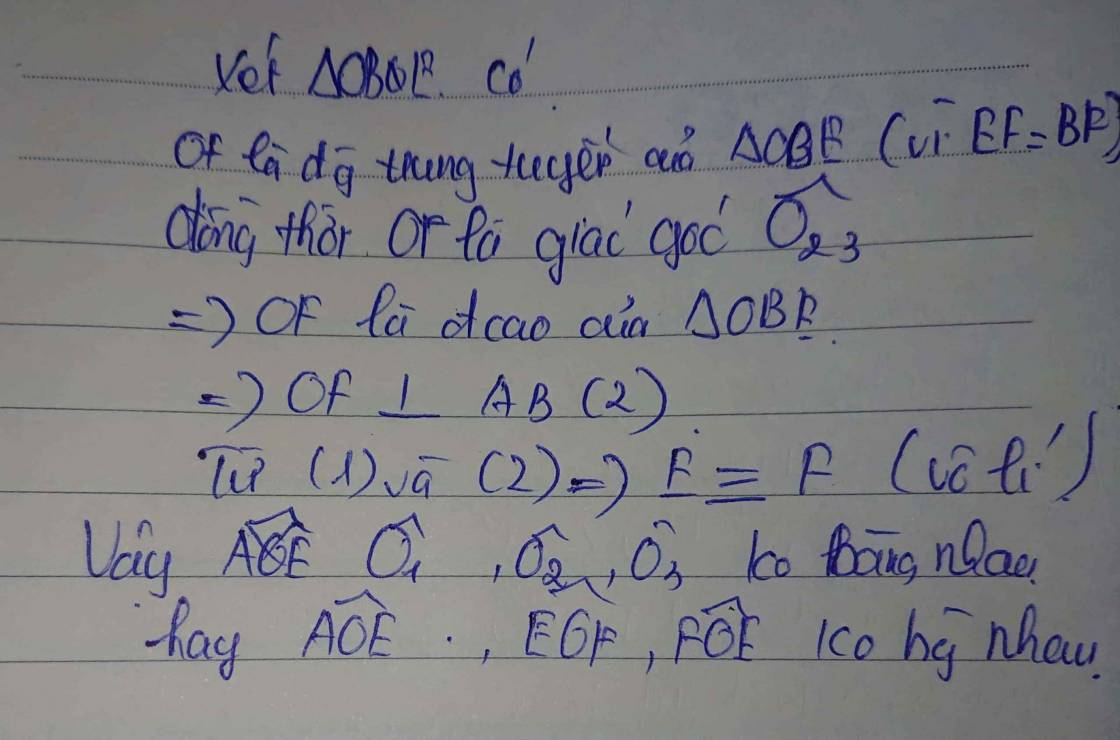 Xét ΔOBOE. có
OF là đg trung tuyến của ΔOBE (vì EF=BF)
đồng thời OF là giác góc Ô₂₃
=> OF là đ cao của ΔOBE.
=> OF ⊥ AB (2)
Từ (1) và (2) => E ≡ F (vô lí)
Vậy AOE Ô₁ , Ô₂, Ô₃ ko bằng nhau
hay AÔE . , EÔF, FÔE ko bg nhau.